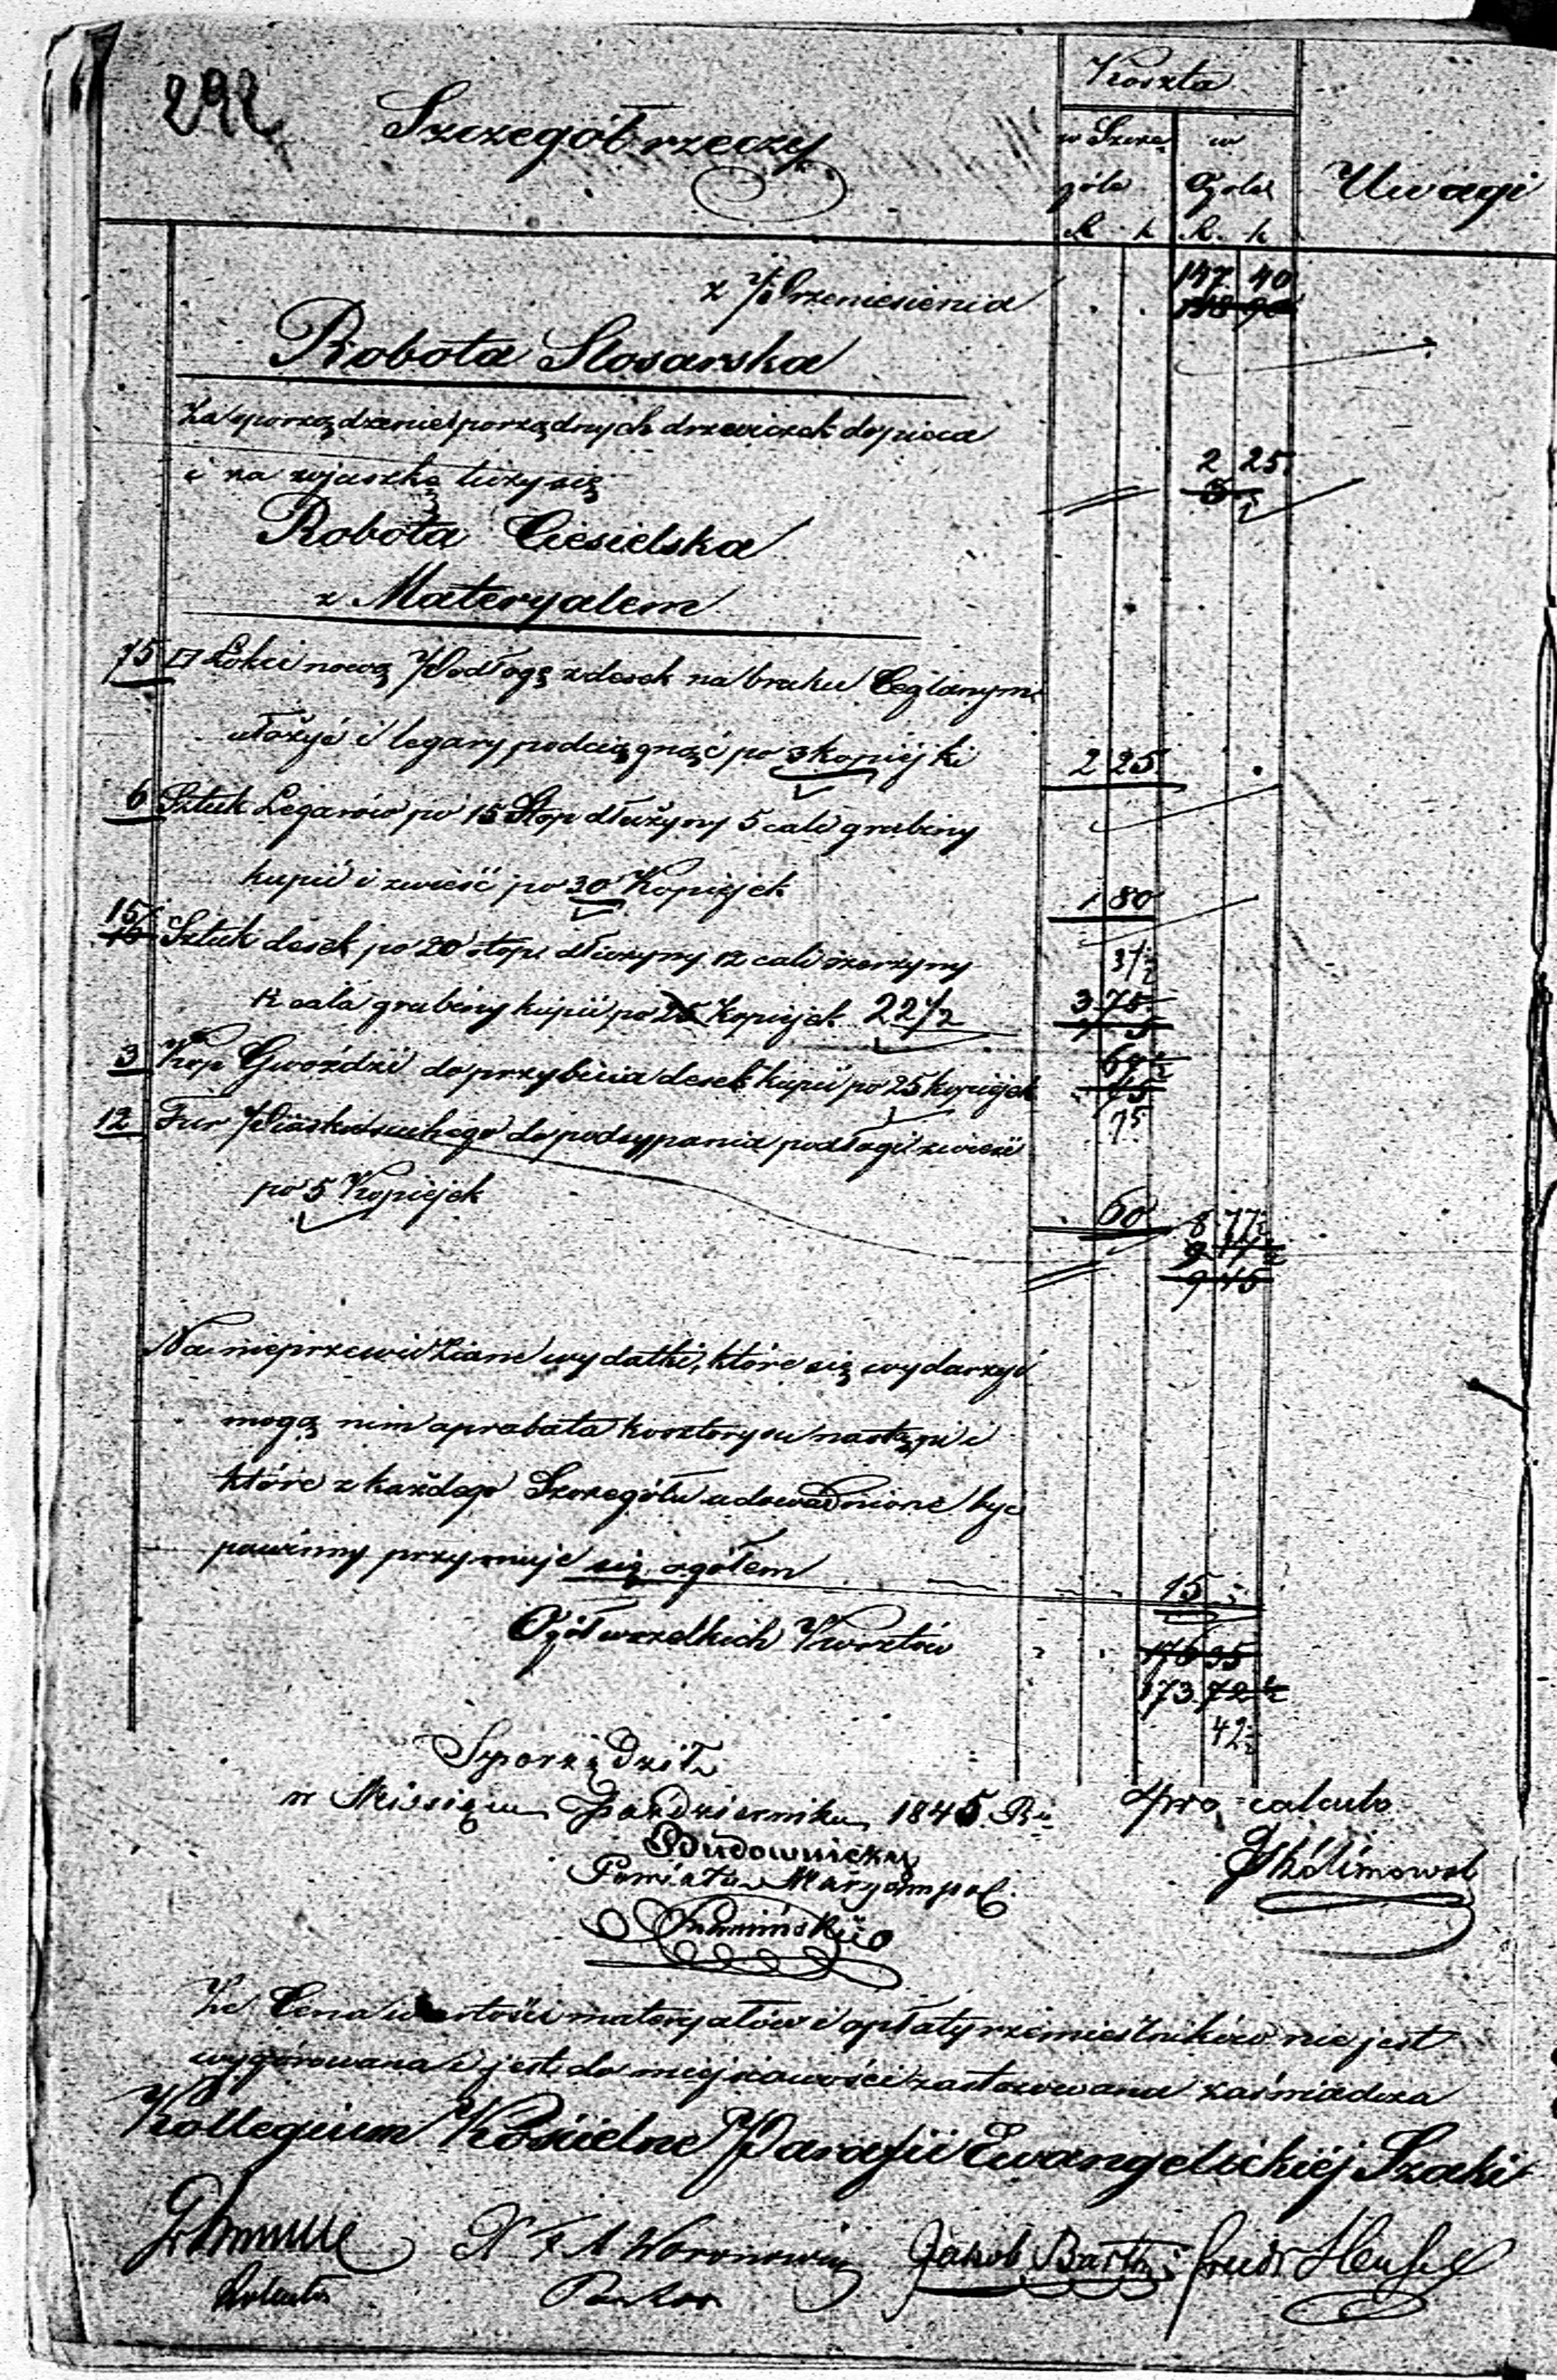 292
Szczegół rzeczy
Koszta
w Szcze
góle
w
Ogóle
R k R. k
Uwagi
z Przeniesienia 147 40
148 90
Robota Slosarska
Za sporządzenie porządnych drzwiczek do pieca
i na wjuszkę liczy się 2 25
Robota Ciesielska
z Materyalem
75 □ Łokci nową Podłogę z desek na braku Ceglanym
ułożyć i legary podciągnąć po 3 kopiejki 2 25
6 Sztuk Legarów po 15 Stop dłużyny 5 cali grubiny
kupić i zwieść po 30 Kopiejek 1 80
15
16 Sztuk desek po 20 stop dłużyny 12 cali szerzyny 37½
cala grubiny kupić po 25 Kopiejek 22½ 3 75
3 Kop Gwoździ do przybicia desek kupić po 25 kopiejek 75
12 Fur Piasku suchego do podsypania podłogi zwieść
po 5 Kopiejek 60 8 77½
9 45
Na nieprzewidziane wydatki, które się wydarzyć
mogą nim aprobata kosztorysu nastąpi i
które z każdego Szczegółu udowodnione być
powinny przyjmuje się ogółem 15
Ogół wszelkich Kosztów 176 35
173 72½
42½
Sporządził
w Miesiącu Październiku 1845 R.
Budowniczy
Powiatu Maryampol.
pro calculo
Że Cena wartości materyałów i opłaty rzemieślników nie jest
wygórowana i jest do miejscowości zastosowana zaświadcza
Kollegium Kościelne Parafii Ewangelickiéj Szaki
F A Woronowicz
Pastor
Jakob Barth